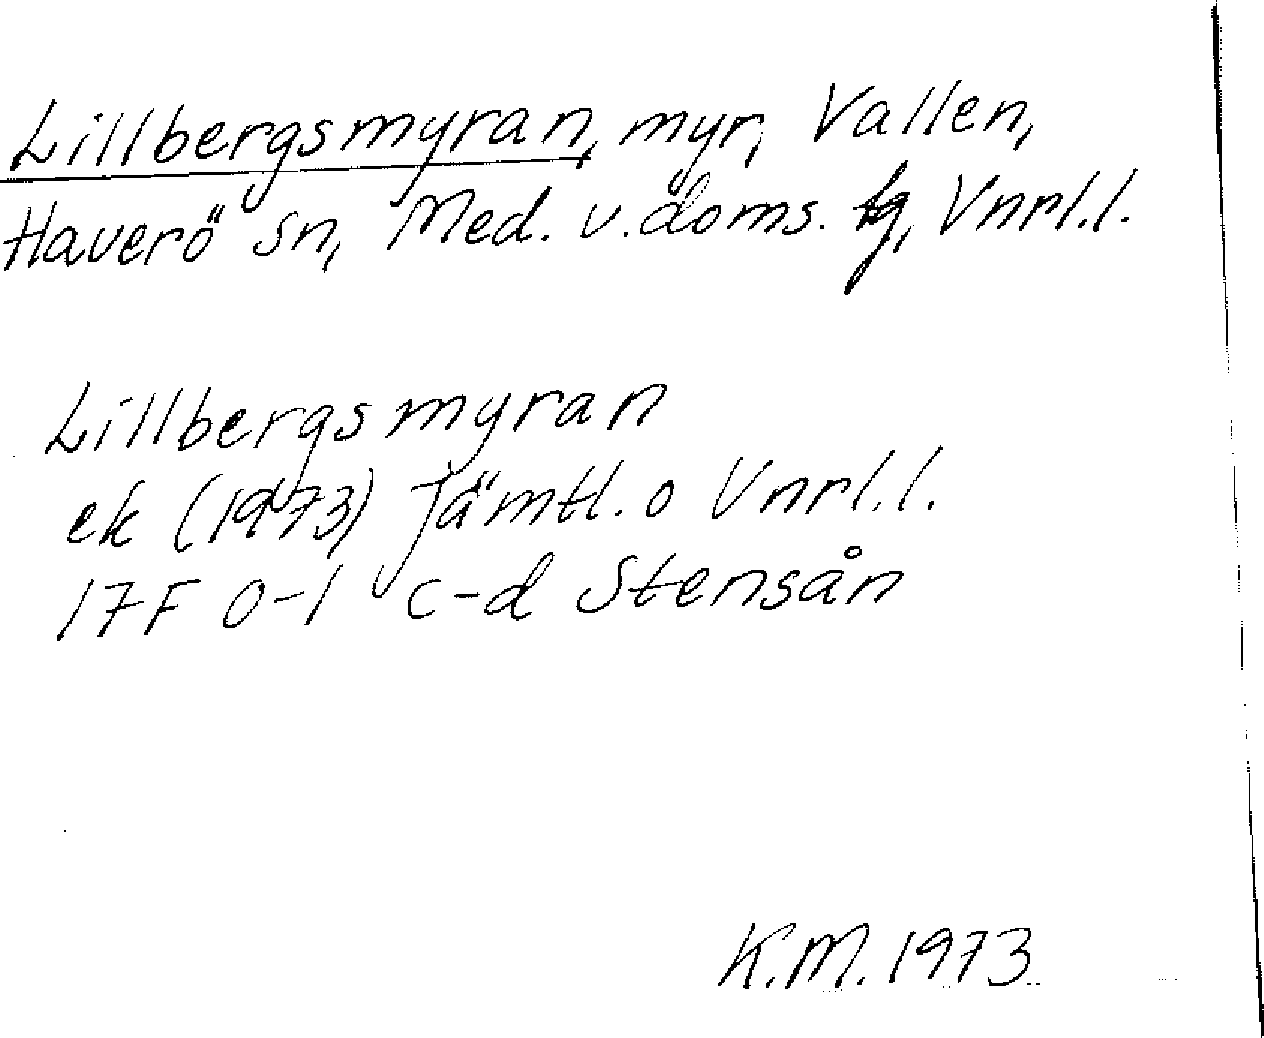 Lillbergsmyran, myr, Vallen,
Haverö sn, Med. v. doms. tg, Vnrl.l.
Lillbergsmyran
ek (1973) Jämtl. o Vnrl.l.
17F 0-1 c-d Stensån
K.M. 1973